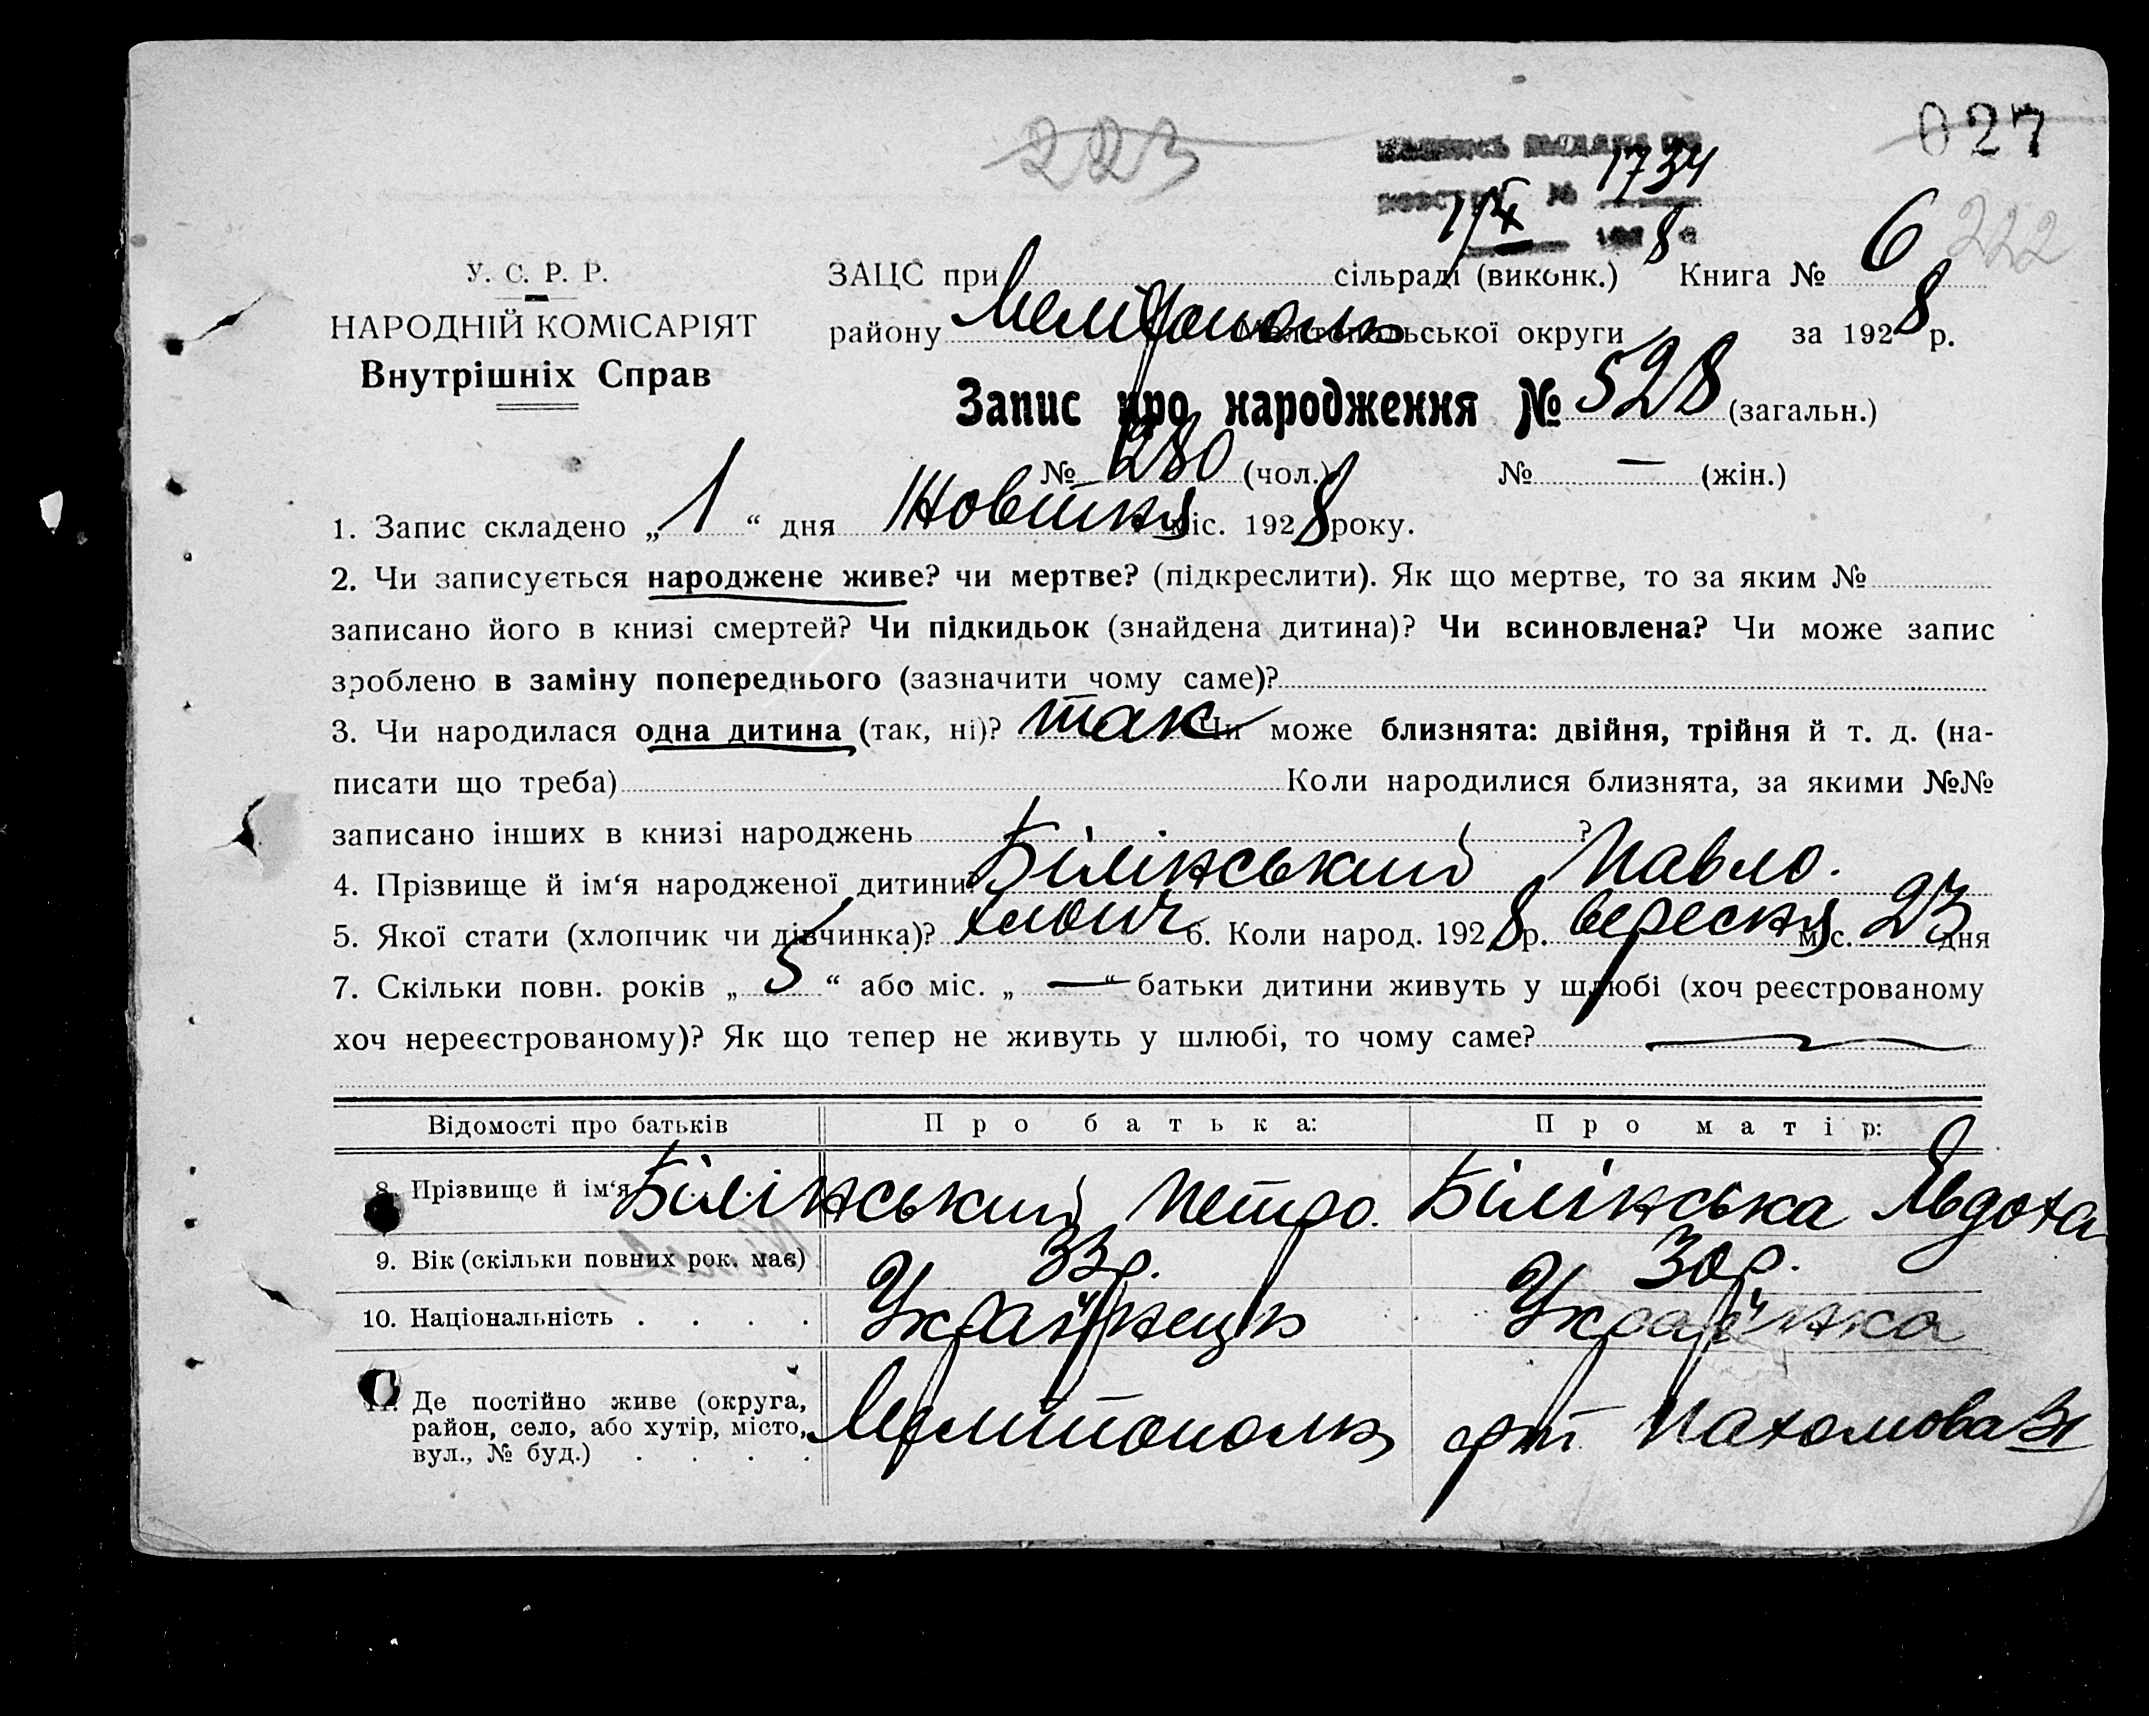 223
027
1734
1/X 8
222
У. С. Р. Р.
НАРОДНІЙ КОМІСАРІЯТ
Внутрішніх Справ
ЗАЦС при сільраді (виконк.) Книга № 6
району Мелітополь Мелітопольської округи за 1928 р.
Запис про народження № 528 (загальн.)
№ 280 (чол.) № — (жін.)
1. Запис складено „ 1 “ дня Жовтня міс. 1928 року.
2. Чи записується народжене живе? чи мертве? (підкреслити). Як що мертве, то за яким №
записано його в книзі смертей? Чи підкидьок (знайдена дитина)? Чи всиновлена? Чи може запис
зроблено в заміну попереднього (зазначити чому саме)?
3. Чи народилася одна дитина (так, ні)? так Чи може близнята: двійня, трійня й т. д. (на-
писати що треба) Коли народилися близнята, за якими №№
записано інших в книзі народжень ?
4. Прізвище й ім‘я народженої дитини: Білінський Павло.
5. Якої стати (хлопчик чи дівчинка)? хлопч 6. Коли народ. 1928 р. вересня міс. 23 дня
7. Скільки повн. років „ 5 “ або міс. „ — “ батьки дитини живуть у шлюбі (хоч реєстрованому
хоч нереєстрованому)? Як що тепер не живуть у шлюбі, то чому саме?
Відомості про батьків Про батька: Про матір:
8. Прізвище й ім‘я Білінський Петро. Білінська Явдоха
9. Вік (скільки повних рок. має) 33 р. 30 р.
10. Національність . . . . Українець Українка
11. Де постійно живе (округа,
район, село, або хутір, місто,
вул., № буд.) . . . . Мелітополь Пахомова 31